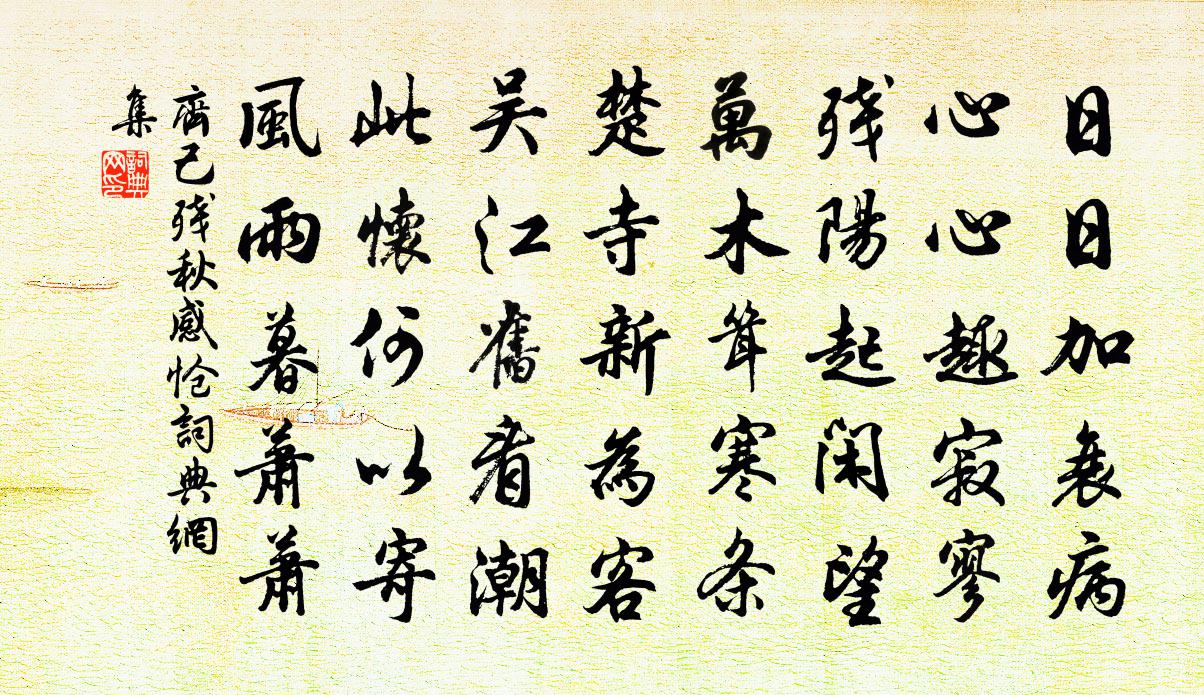 日日加衰病
心心趣寂寥
残陽起闲望
萬木耸寒条
楚寺新為客
吴江舊看潮
此懷何以寄
風雨暮蕭蕭
齊己残秋感怆詞典網
集
詞典
网印